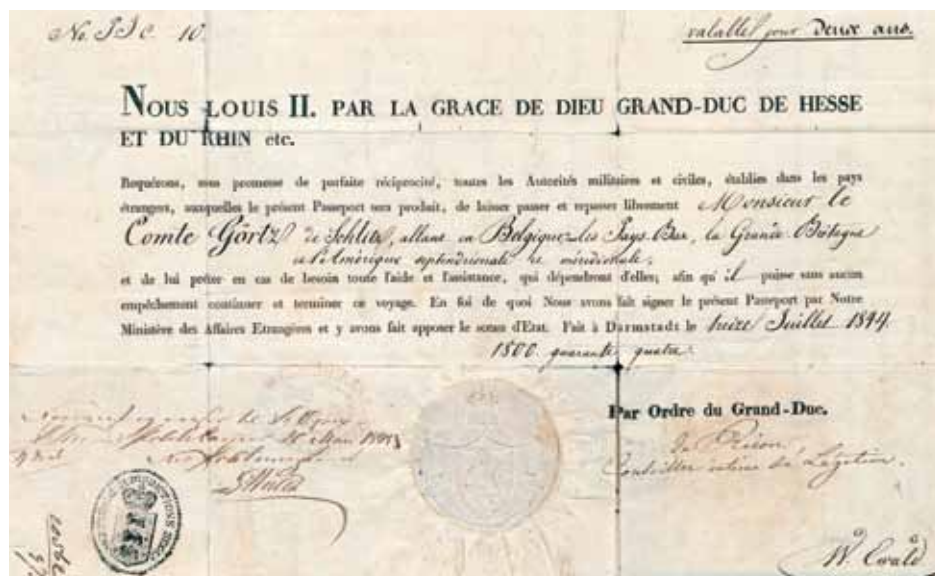 No. 10.
valable pour Deux ans.
NOUS LOUIS II. PAR LA GRACE DE DIEU GRAND-DUC DE HESSE
ET DU RHIN etc.
Requérons, sous promesse de parfaite réciprocité, toutes les Autorités militaires et civiles, établies dans les pays
étrangers, auxquelles le présent Passeport sera produit, de laisser passer et repasser librement Monsieur le
Comte Görtz de Schlitz, allant en Belgique, les Pays-Bas, la Grande Brétagne
et l'Amérique septendrionale et méridionale,
et de lui prêter en cas de besoin toute l'aide et l'assistance, qui dépendront d'elles; afin qu'il puisse sans aucun
empêchement continuer et terminer ce voyage. En foi de quoi Nous avons fait signer le présent Passeport par Notre
Ministère des Affaires Etrangères et y avons fait apposer le sceau d'Etat. Fait à Darmstadt le Juillet 1844
1800 quarante quatre.
Par Ordre du Grand-Duc.
Conseiller intime de Légation.
Ewald